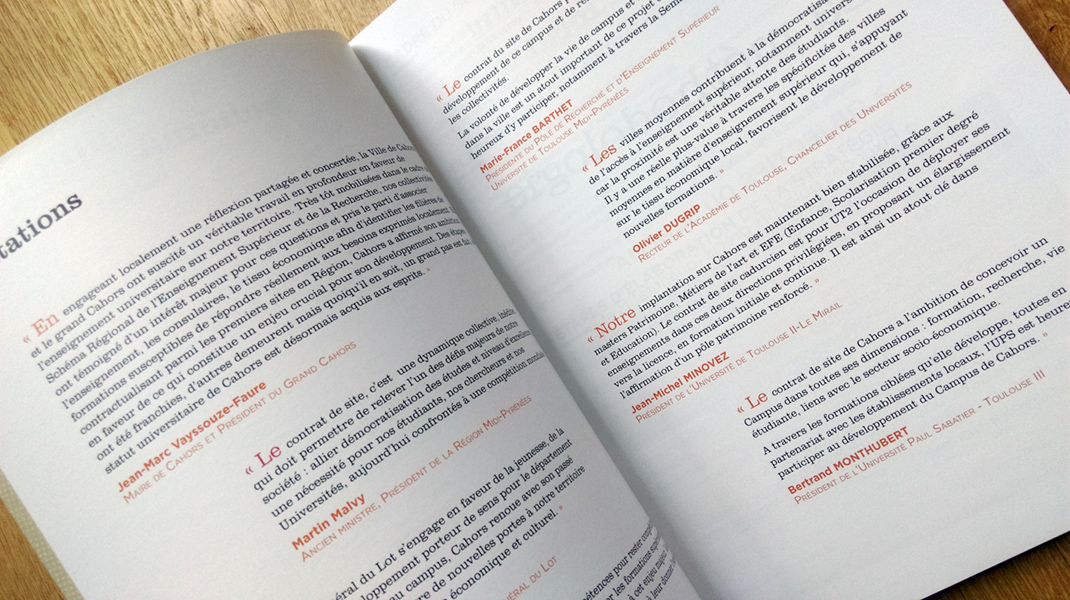 tations
« En engageant localement une réflexion partagée et concertée, la Ville de Cahors
et le grand Cahors ont suscité un véritable travail en profondeur en faveur de
l'enseignement universitaire sur notre territoire. Très tôt mobilisées dans le cadre
Schéma Régional de l'Enseignement Supérieur et de la Recherche, nos collectivités
ont témoigné d'un intérêt majeur pour ces questions et pris le parti d'associer
l'enseignement, les consulaires, le tissu économique afin d'identifier les filières de
formations susceptibles de répondre réellement aux besoins exprimés localement.
contractualisant parmi les premiers sites en Région, Cahors a affirmé son ambition
en faveur de ce qui constitue un enjeu crucial pour son développement. Des étapes
ont été franchies, d'autres demeurent mais quoiqu'il en soit, un grand pas est fait
statut universitaire de Cahors est désormais acquis aux esprits. »
Jean-Marc Vayssouze-Faure
Maire de Cahors et Président du Grand Cahors
« Le contrat de site, c'est une dynamique collective, inédite
qui doit permettre de relever l'un des défis majeurs de notre
société : allier démocratisation des études et niveau d'excellence
une nécessité pour nos étudiants, nos chercheurs et nos
Universités, aujourd'hui confrontés à une compétition mondiale
Martin Malvy
Ancien ministre, Président de la Région Midi-Pyrénées
ral du Lot s'engage en faveur de la jeunesse, de la
loppement porteur de sens pour le département
au campus, Cahors renoue avec son passé
re de nouvelles portes à notre territoire
économique et culturel. »
éral du Lot
pétences pour rester
par les formations
à cet enjeu
à leur
« Le contrat du site de Cahors
développement de ce campus et de
les collectivités.
La volonté de développer la vie de campus et
dans la ville est un atout important de ce projet
heureux d'y participer, notamment à travers la
Marie-France BARTHET
Présidente du Pôle de Recherche et d'Enseignement Supérieur
Université de Toulouse Midi-Pyrénées
« Les villes moyennes contribuent à la démocratisa
de l'accès à l'enseignement supérieur, notamment univers
car la proximité est une véritable attente des étudiants.
Il y a une réelle plus-value à travers les spécificités des villes
moyennes en matière d'enseignement supérieur qui, s'appuyant
sur le tissu économique local, favorisent le développement de
nouvelles formations. »
Olivier DUGRIP
Recteur de l'Académie de Toulouse, Chancelier des Universités
« Notre implantation sur Cahors est maintenant bien stabilisée, grâce aux
masters Patrimoine, Métiers de l'art et EFE (Enfance, Scolarisation premier degré
et Education). Le contrat de site cadurcien est pour UT2 l'occasion de déployer ses
enseignements dans ces deux directions privilégiées, en proposant un élargissement
vers la licence, en formation initiale et continue. Il est ainsi un atout clé dans
l'affirmation d'un pôle patrimoine renforcé. »
Jean-Michel MINOVEZ
Président de l'Université de Toulouse II-Le Mirail
« Le contrat de site de Cahors a l'ambition de concevoir un
Campus dans toutes ses dimensions : formation, recherche, vie
étudiante, liens avec le secteur socio-économique.
A travers les formations ciblées qu'elle développe, toutes en
partenariat avec les établissements locaux, l'UPS est heureuse
participer au développement du Campus de Cahors. »
Bertrand MONTHUBERT
Président de l'Université Paul Sabatier - Toulouse III